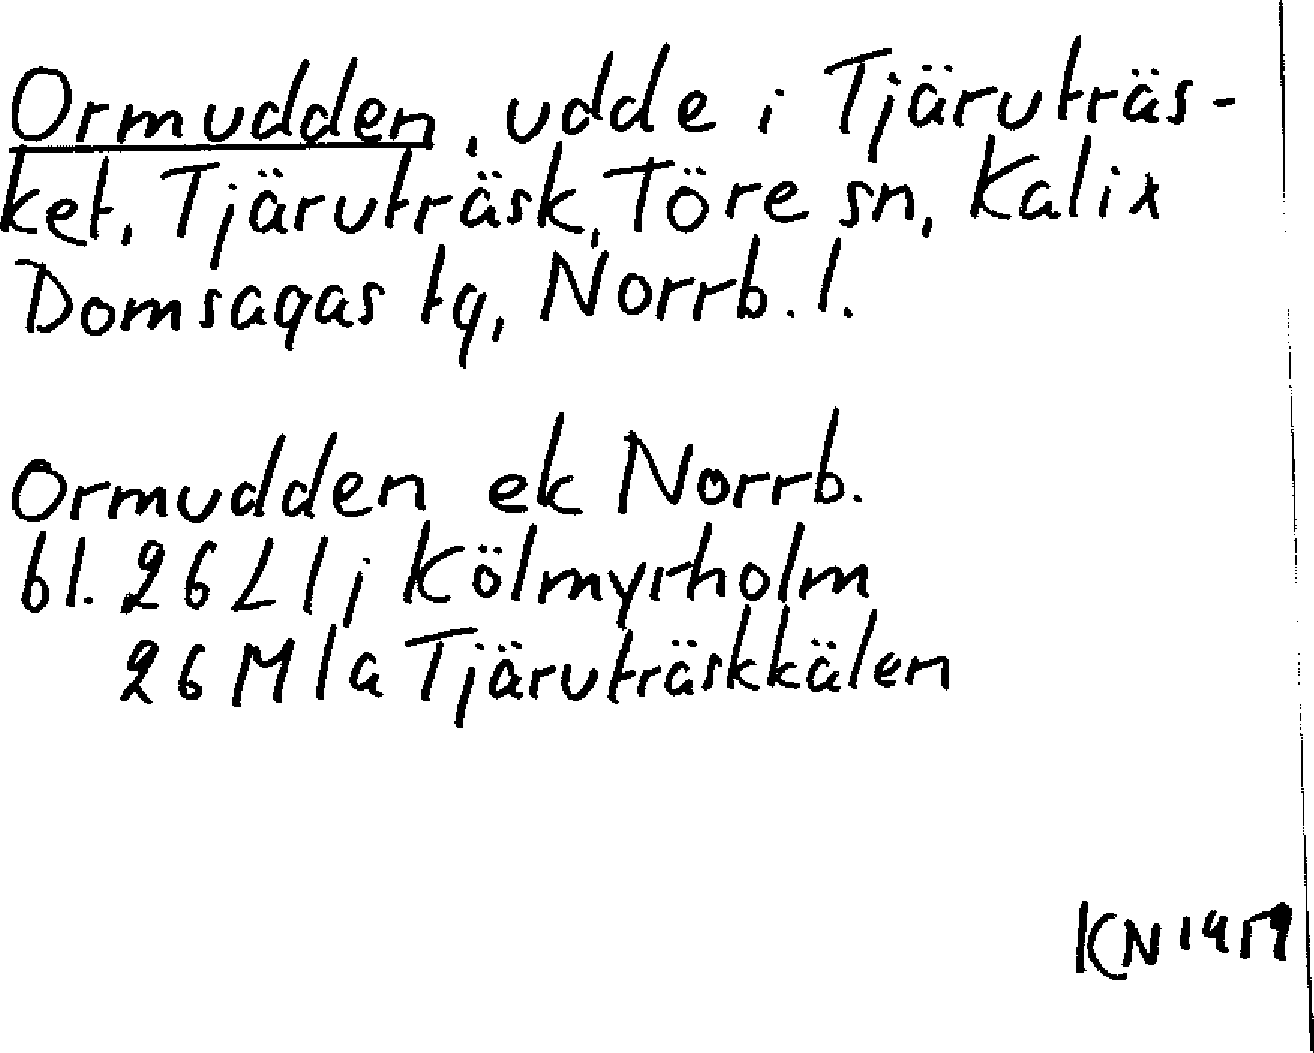 Ormudden, udde i Tjäruträs-
ket, Tjäruträsk, Töre sn, Kalix
Domsagas tg, Norrb. l.
Ormudden ek Norrb.
bl. 26 L 1 j Kölmyrholm
26 M 1 a Tjäruträskkälen
KN